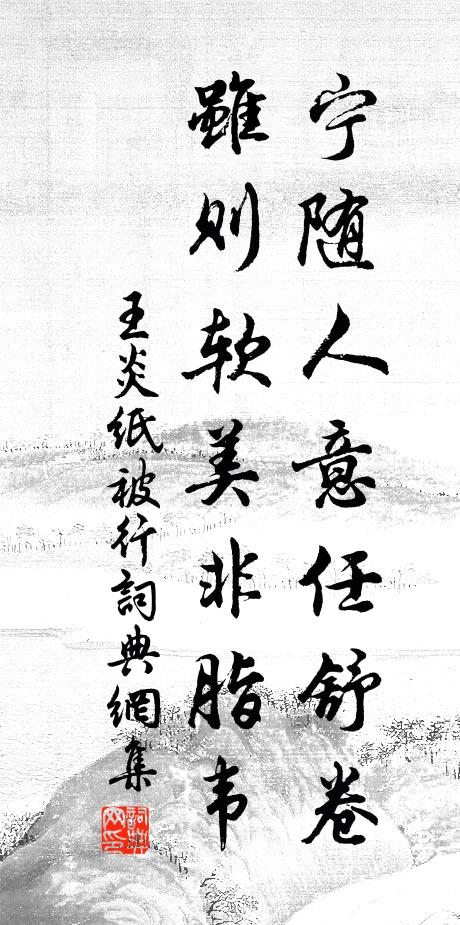 宁随人意任舒卷
雖则软美非脂韦
王炎纸被行詞典網集
詞典网印